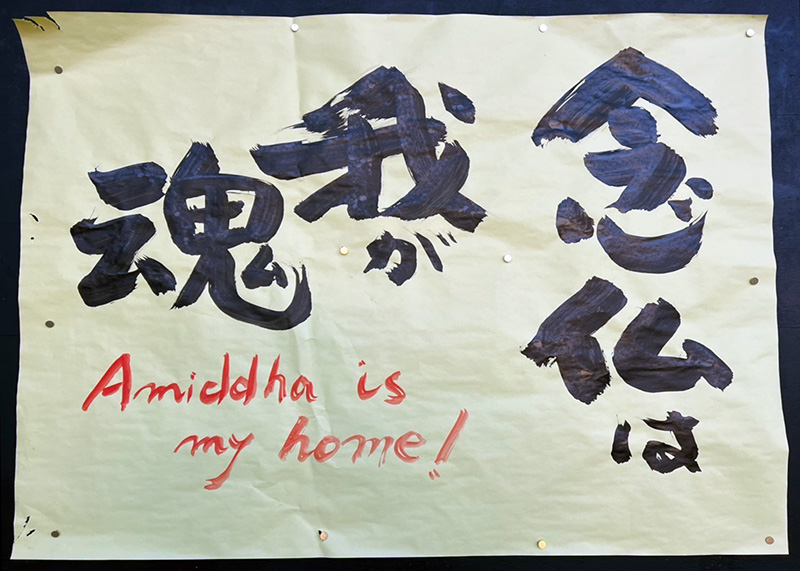 念仏は
我が
魂
Amiddha is
my home!